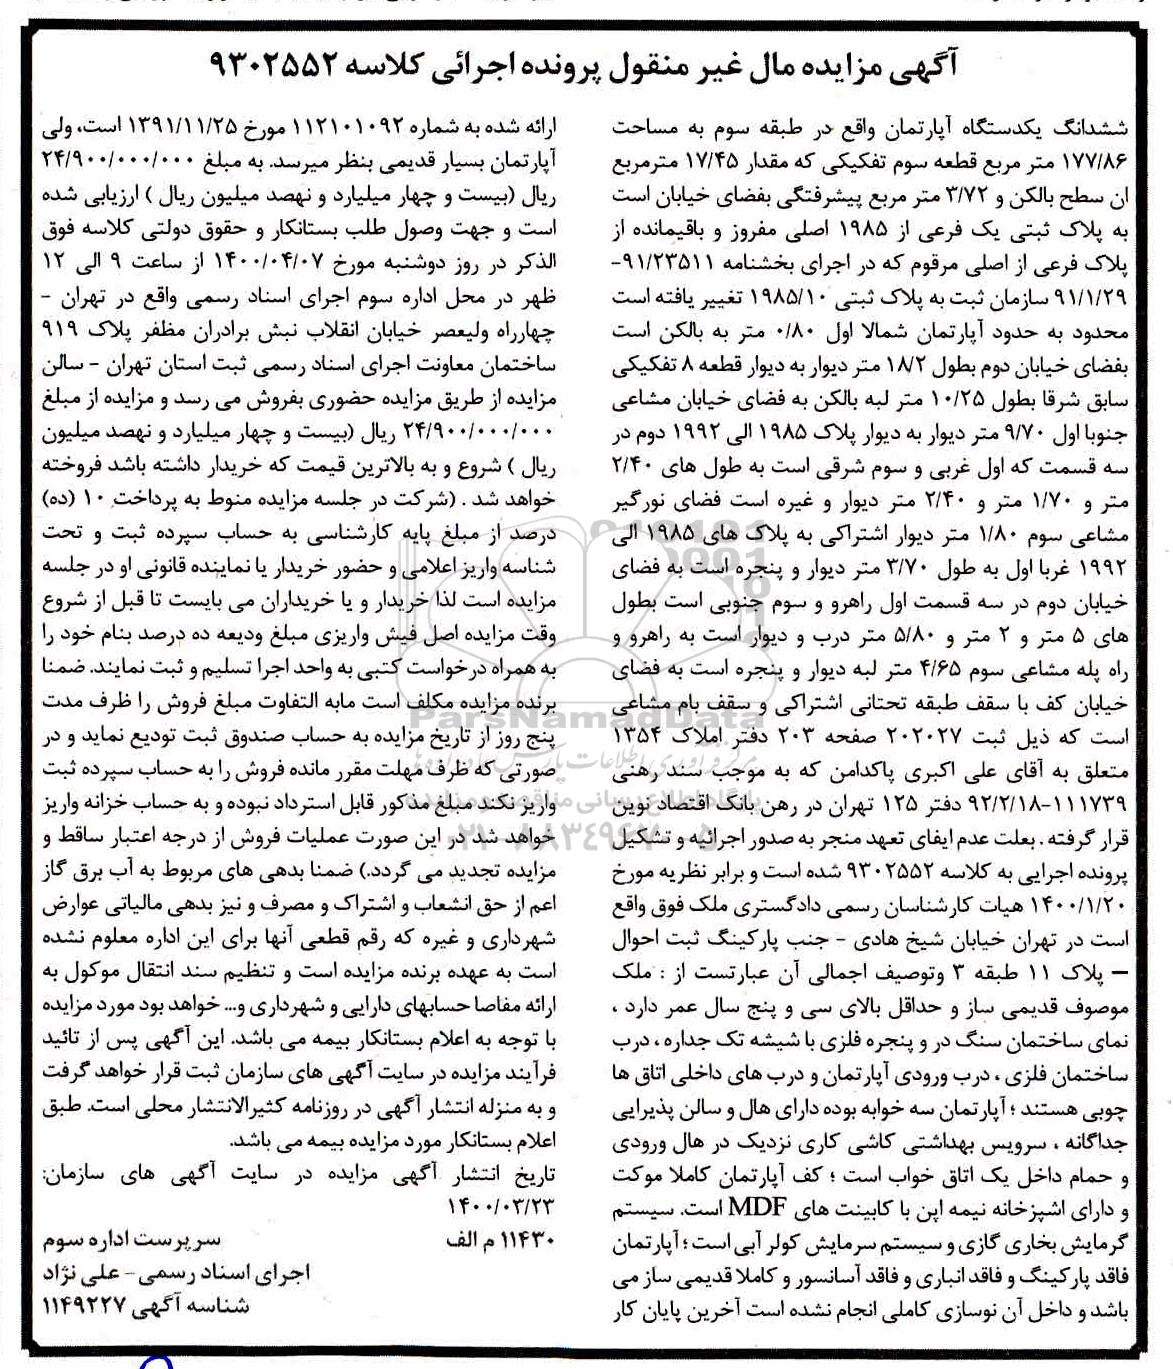 آگهی مزایده مال غیر منقول پرونده اجرائی کلاسه ۹۳۰۲۵۵۲
ششدانگ یکدستگاه آپارتمان واقع در طبقه سوم به مساحت
۱۷۷/۸۶ متر مربع قطعه سوم تفکیکی که مقدار ۱۷/۴۵ مترمربع
ان سطح بالکن و ۳/۷۲ متر مربع پیشرفتگی بفضای خیابان است
به پلاک ثبتی یک فرعی از ۱۹۸۵ اصلی مفروز و باقیمانده از
پلاک فرعی از اصلی مرقوم که در اجرای بخشنامه ۹۱/۲۳۵۱۱-
۹۱/۱/۲۹ سازمان ثبت به پلاک ثبتی ۱۹۸۵/۱۰ تغییر یافته است
محدود به حدود آپارتمان شمالا اول ۰/۸۰ متر به بالکن است
بفضای خیابان دوم بطول ۱۸/۲ متر دیوار به دیوار قطعه ۸ تفکیکی
سابق شرقا بطول ۱۰/۲۵ متر لبه بالکن به فضای خیابان مشاعی
جنوبا اول ۹/۷۰ متر دیوار به دیوار پلاک ۱۹۸۵ الی ۱۹۹۲ دوم در
سه قسمت که اول غربی و سوم شرقی است به طول های ۲/۴۰
متر و ۱/۷۰ متر و ۲/۴۰ متر دیوار و غیره است فضای نورگیر
مشاعی سوم ۱/۸۰ متر دیوار اشتراکی به پلاک های ۱۹۸۵ الی
۱۹۹۲ غربا اول به طول ۳/۷۰ متر دیوار و پنجره است به فضای
خیابان دوم در سه قسمت اول راهرو و سوم جنوبی است بطول
های ۵ متر و ۲ متر و ۵/۸۰ متر درب و دیوار است به راهرو و
راه پله مشاعی سوم ۴/۶۵ متر لبه دیوار و پنجره است به فضای
خیابان کف با سقف طبقه تحتانی اشتراکی و سقف بام مشاعی
است که ذیل ثبت ۲۰۲۰۲۷ صفحه ۲۰۳ دفتر املاک ۱۳۵۴
متعلق به آقای علی اکبری پاکدامن که به موجب سند رهنی
۱۱۱۷۳۹-۹۲/۲/۱۸ دفتر ۱۲۵ تهران در رهن بانک اقتصاد نوین
قرار گرفته . بعلت عدم ایفای تعهد منجر به صدور اجرائیه و تشکیل
پرونده اجرایی به کلاسه ۹۳۰۲۵۵۲ شده است و برابر نظریه مورخ
۱۴۰۰/۱/۲۰ هیات کارشناسان رسمی دادگستری ملک فوق واقع
است در تهران خیابان شیخ هادی - جنب پارکینگ ثبت احوال
– پلاک ۱۱ طبقه ۳ وتوصیف اجمالی آن عبارتست از : ملک
موصوف قدیمی ساز و حداقل بالای سی و پنج سال عمر دارد ،
نمای ساختمان سنگ در و پنجره فلزی با شیشه تک جداره ، درب
ساختمان فلزی ، درب ورودی آپارتمان و درب های داخلی اتاق ها
چوبی هستند ؛ آپارتمان سه خوابه بوده دارای هال و سالن پذیرایی
جداگانه ، سرویس بهداشتی کاشی کاری نزدیک در هال ورودی
و حمام داخل یک اتاق خواب است ؛ کف آپارتمان کاملا موکت
و دارای اشپزخانه نیمه اپن با کابینت های MDF است. سیستم
گرمایش بخاری گازی و سیستم سرمایش کولر آبی است ؛ آپارتمان
فاقد پارکینگ و فاقد انباری و فاقد آسانسور و کاملا قدیمی ساز می
باشد و داخل آن نوسازی کاملی انجام نشده است آخرین پایان کار
ارائه شده به شماره ۱۱۲۱۰۱۰۹۲ مورخ ۱۳۹۱/۱۱/۲۵ است، ولی
آپارتمان بسیار قدیمی بنظر میرسد. به مبلغ ۲۴/۹۰۰/۰۰۰/۰۰۰
ریال (بیست و چهار میلیارد و نهصد میلیون ریال ) ارزیابی شده
است و جهت وصول طلب بستانکار و حقوق دولتی کلاسه فوق
الذکر در روز دوشنبه مورخ ۱۴۰۰/۰۴/۰۷ از ساعت ۹ الی ۱۲
ظهر در محل اداره سوم اجرای اسناد رسمی واقع در تهران -
چهارراه ولیعصر خیابان انقلاب نبش برادران مظفر پلاک ۹۱۹
ساختمان معاونت اجرای اسناد رسمی ثبت استان تهران - سالن
مزایده از طریق مزایده حضوری بفروش می رسد و مزایده از مبلغ
۲۴/۹۰۰/۰۰۰/۰۰۰ ریال (بیست و چهار میلیارد و نهصد میلیون
ریال ) شروع و به بالاترین قیمت که خریدار داشته باشد فروخته
خواهد شد . (شرکت در جلسه مزایده منوط به پرداخت ۱۰ (ده)
درصد از مبلغ پایه کارشناسی به حساب سپرده ثبت و تحت
شناسه واریز اعلامی و حضور خریدار یا نماینده قانونی او در جلسه
مزایده است لذا خریدار و یا خریداران می بایست تا قبل از شروع
وقت مزایده اصل فیش واریزی مبلغ ودیعه ده درصد بنام خود را
به همراه درخواست کتبی به واحد اجرا تسلیم و ثبت نمایند. ضمنا
برنده مزایده مکلف است مابه التفاوت مبلغ فروش را ظرف مدت
پنج روز از تاریخ مزایده به حساب صندوق ثبت تودیع نماید و در
صورتی که ظرف مهلت مقرر مانده فروش را به حساب سپرده ثبت
واریز نکند مبلغ مذکور قابل استرداد نبوده و به حساب خزانه واریز
خواهد شد در این صورت عملیات فروش از درجه اعتبار ساقط و
مزایده تجدید می گردد.) ضمنا بدهی های مربوط به آب برق گاز
اعم از حق انشعاب و اشتراک و مصرف و نیز بدهی مالیاتی عوارض
شهرداری و غیره که رقم قطعی آنها برای این اداره معلوم نشده
است به عهده برنده مزایده است و تنظیم سند انتقال موکول به
ارائه مفاصا حسابهای دارایی و شهرداری و... خواهد بود مورد مزایده
با توجه به اعلام بستانکار بیمه می باشد. این آگهی پس از تائید
فرآیند مزایده در سایت آگهی های سازمان ثبت قرار خواهد گرفت
و به منزله انتشار آگهی در روزنامه کثیرالانتشار محلی است. طبق
اعلام بستانکار مورد مزایده بیمه می باشد.
تاریخ انتشار آگهی مزایده در سایت آگهی های سازمان:
۱۴۰۰/۰۳/۲۳
۱۱۴۳۰ م الف
سرپرست اداره سوم
اجرای اسناد رسمی - علی نژاد
شناسه آگهی ۱۱۴۹۲۲۷
ParsNamadData